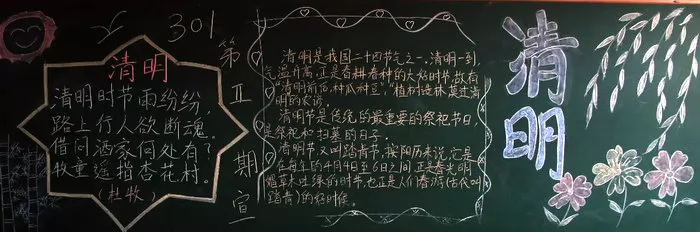 301
清明
清明时节雨纷纷,
路上行人欲断魂。
借问酒家何处有?
牧童遥指杏花村。
(杜牧)
第Ⅱ期宣
清明是我国二十四节气之一,清明一到,
气温升高,正是春耕春种的大好时节,故有
“清明前后,种瓜种豆”,“植树造林,莫过清
明”的农谚。
清明节是传统的最重要的祭祀节日,
是祭祀和扫墓的日子。
清明节又叫踏青节,按阳历来说,它是
在每年的4月4日至6日之间,正是春光明
媚草木吐绿的时节,也正是人们春游(古代叫
踏青)的好时候。
清明